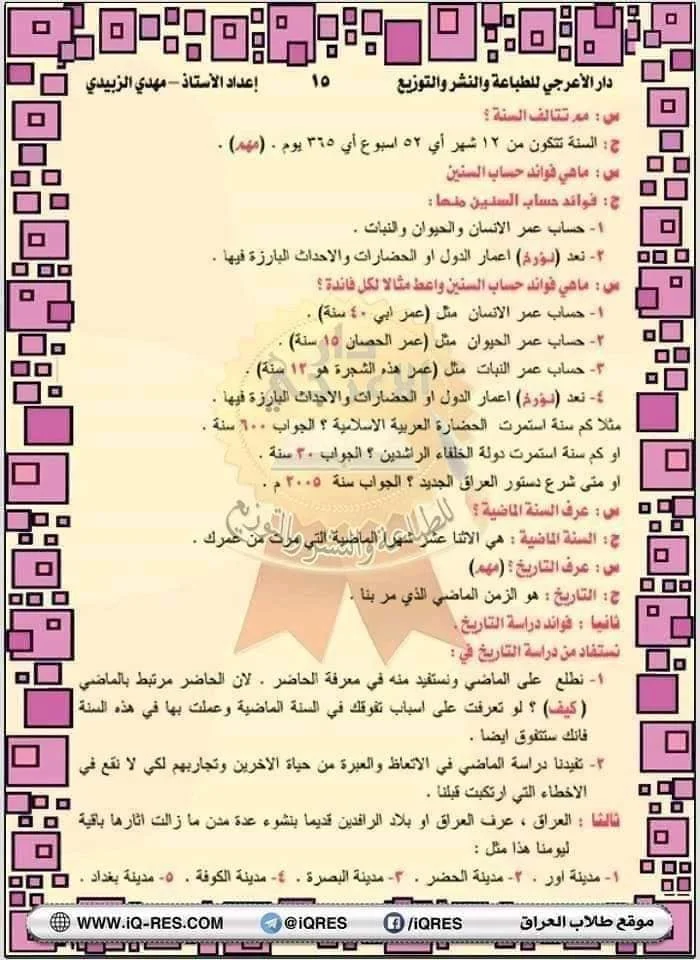 دار الأعرجي للطباعة والنشر والتوزيع ١٥ إعداد الأستاذ – مهدي الزبيدي
س: مم تتالف السنة؟
ج: السنة تتكون من ١٢ شهر أي ٥٢ اسبوع أي ٣٦٥ يوم . (مهم) .
س: ماهي فوائد حساب السنين
ج: فوائد حساب السنين منها:
١- حساب عمر الانسان والحيوان والنبات .
٢- نعد (نؤرخ) اعمار الدول او الحضارات والاحداث البارزة فيها .
س: ماهي فوائد حساب السنين واعط مثالا لكل فائدة؟
١- حساب عمر الانسان مثل (عمر ابي ٤٠ سنة) .
٢- حساب عمر الحيوان مثل (عمر الحصان ١٥ سنة) .
٣- حساب عمر النبات مثل (عمر هذه الشجرة هو ١٢ سنة) .
٤- نعد (نؤرخ) اعمار الدول او الحضارات والاحداث البارزة فيها .
مثلا كم سنة استمرت الحضارة العربية الاسلامية ؟ الجواب ٦٠٠ سنة .
او كم سنة استمرت دولة الخلفاء الراشدين ؟ الجواب ٣٠ سنة .
او متى شرع دستور العراق الجديد ؟ الجواب سنة ٢٠٠٥ م .
س: عرف السنة الماضية ؟
ج: السنة الماضية : هي الاثنا عشر شهرا الماضية التي مرت من عمرك .
س: عرف التاريخ؟ (مهم)
ج: التاريخ : هو الزمن الماضي الذي مر بنا .
ثانيا : فوائد دراسة التاريخ .
نستفاد من دراسة التاريخ في :
١- نطلع على الماضي ونستفيد منه في معرفة الحاضر . لان الحاضر مرتبط بالماضي
(كيف) ؟ لو تعرفت على اسباب تفوقك في السنة الماضية وعملت بها في هذه السنة
فانك ستتفوق ايضا .
٢- تفيدنا دراسة الماضي في الاتعاظ والعبرة من حياة الاخرين وتجاربهم لكي لا نقع في
الاخطاء التي ارتكبت قبلنا .
ثالثا : العراق ، عرف العراق او بلاد الرافدين قديما بنشوء عدة مدن ما زالت اثارها باقية
ليومنا هذا مثل :
١- مدينة اور . ٢- مدينة الحضر . ٣- مدينة البصرة . ٤- مدينة الكوفة . ٥- مدينة بغداد .
دار
الاعرجي
للطباعة والنشر والتوزيع
موقع طلاب العراق /iQRES @iQRES WWW.iQ-RES.COM